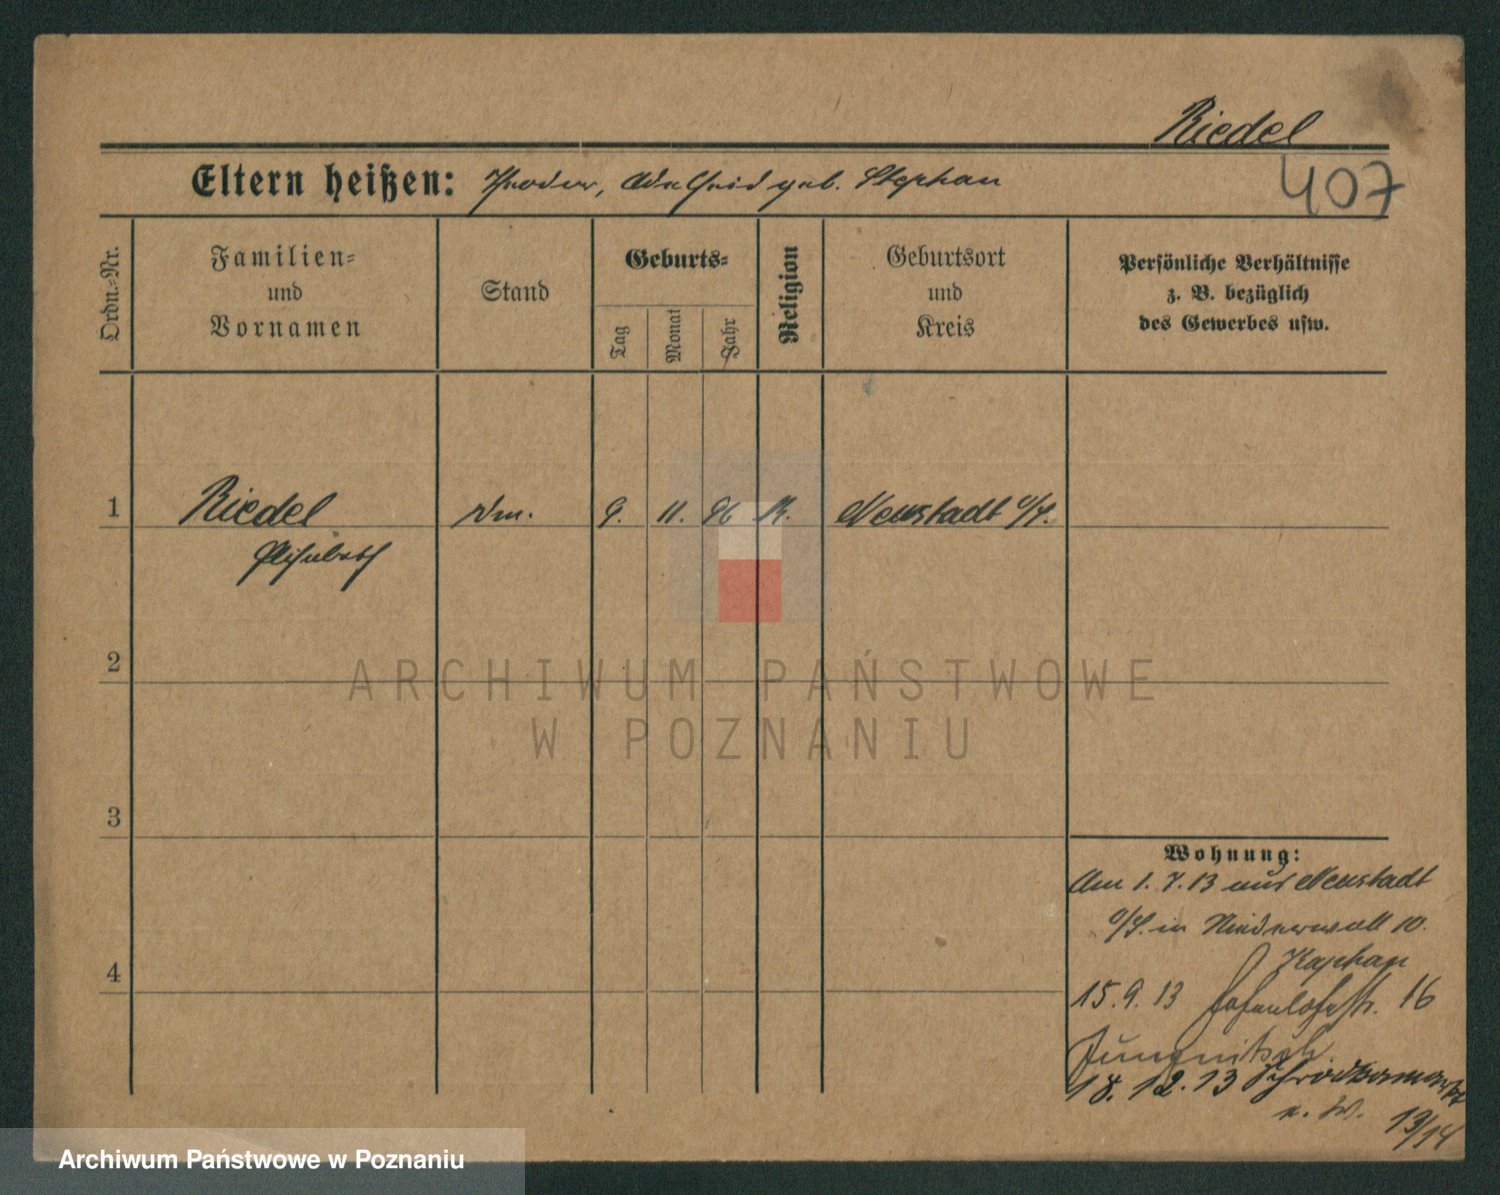 Riedel
407
Eltern heißen: Theodor, Adelheid geb. Stephan
Ordn.-Nr.
Familien-
und
Vornamen
Stand
Geburts-
Tag
Monat
Jahr
Religion
Geburtsort
und
Kreis
Persönliche Verhältnisse
z. B. bezüglich
des Gewerbes usw.
1 Riedel 9. 11. 96 K. Neustadt O/S.
Elisabeth
2
ARCHIWUM PAŃSTWOWE
W POZNANIU
3
Wohnung:
Am 1. 7. 13 aus Neustadt
O/S. in Niederwall 10.
Kaphan
4
15. 9. 13 Hohenlohestr. 16
Jungnitsch.
18. 12. 13 Schrodkamarkt
13/14
Archiwum Państwowe w Poznaniu